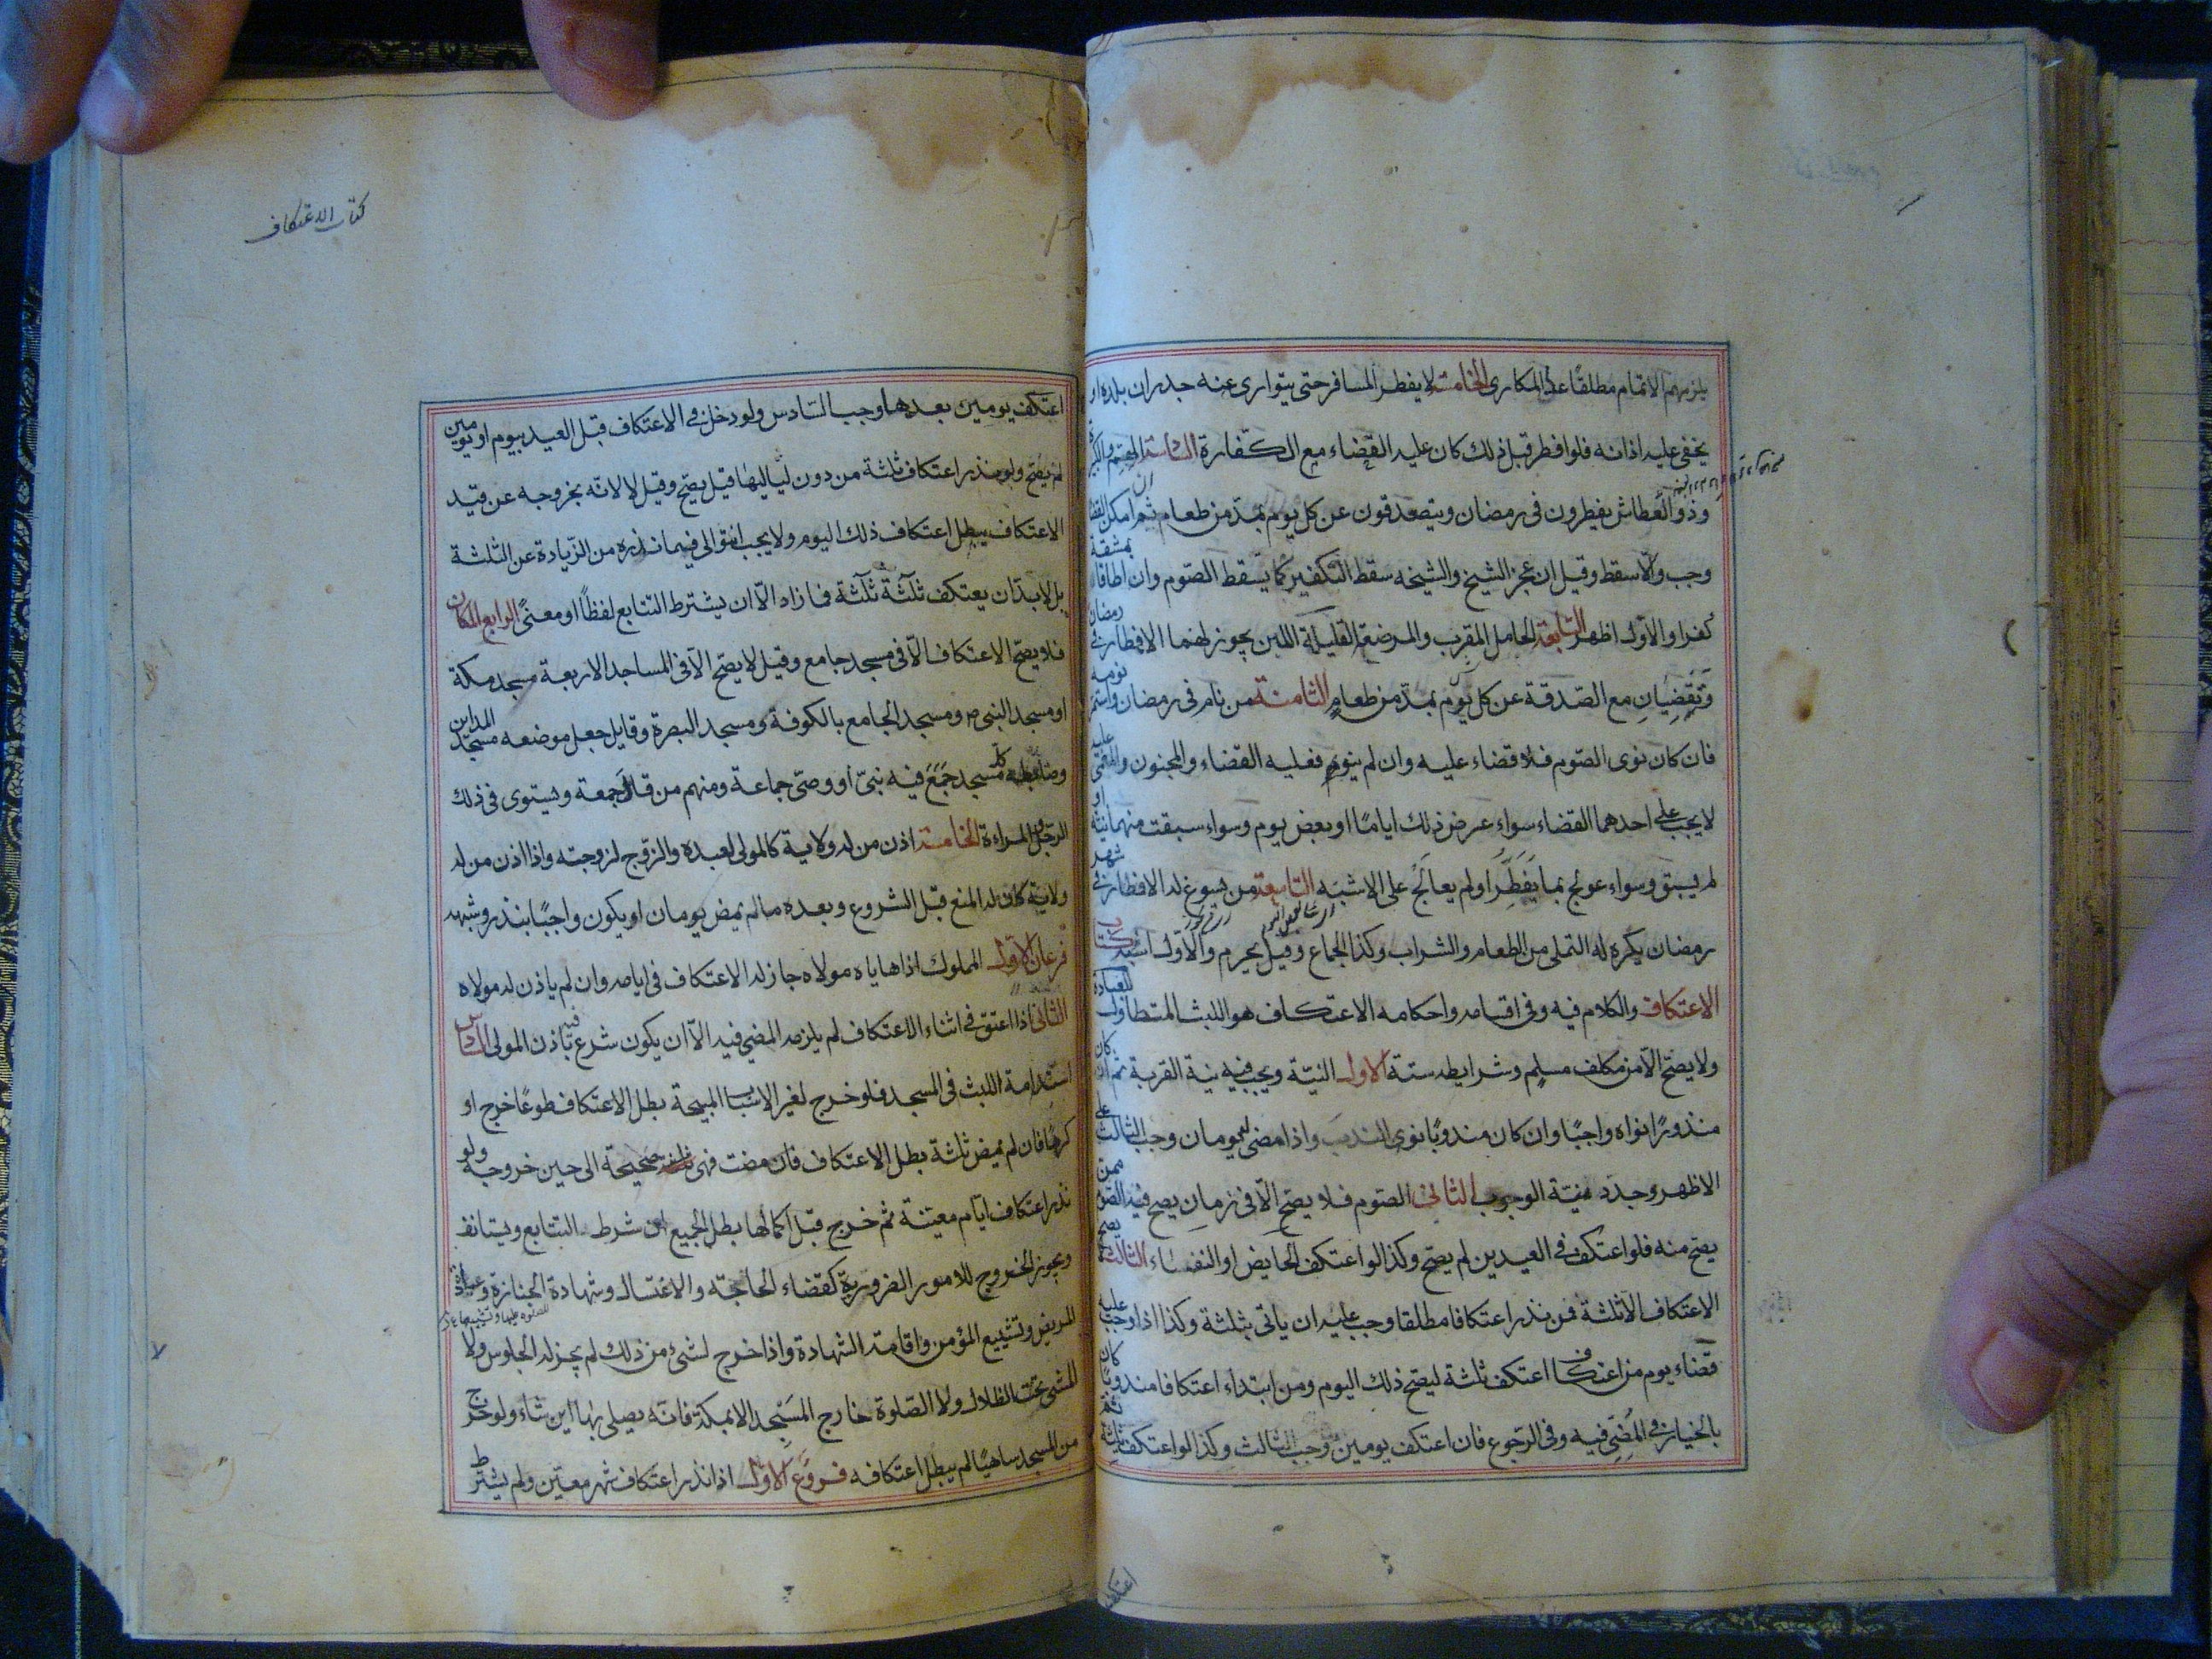 يلزمهم الاتمام مطلقًا عدا المكارى الخامسة لا يفطر المسافر حتى يتوارى عنه جدران بلده او
يخفى عليه اذانه فلو افطر قبل ذلك كان عليه القضاء مع الكفارة السادسة الهم والكبيرة
وذو العطاش يفطرون فى رمضان ويتصدقون عن كل يوم بمد من طعام ثم ان امكن القضاء
وجب والّا سقط وقيل ان عجز الشيخ والشيخه سقط التكفير كما يسقط الصوم وان اطاقا بمشقة
كفرا والاوّل اظهر السابعة الحامل المقرب والمرضعة القليلة اللبن يجوز لهما الافطار فى رمضان
وتقضيان مع الصّدقة عن كل يوم بمدّ من طعام الثامنة من نام فى رمضان واستمر نومه
فان كان نوى الصّوم فلا قضاء عليه وان لم ينو فعليه القضاء والمجنون والمغمى عليه
لا يجب على احدهما القضاء سواء عرض ذلك ايامًا او بعض يوم وسواء سبقت منهما نيته او
لم يسبق وسواء عولج بما يفطر او لم يعالج على الاشبه التاسعة من يسوغ له الافطار فى شهر
رمضان يكره له التملى من الطعام والشراب وكذا الجماع وقيل يحرم والاوّل اشبه كتاب
الاعتكاف والكلام فيه وفى اقسامه واحكامه الاعتكاف هو اللبث المتطاول للعبادة
ولا يصح الّا من مكلف مسلم وشرايطه ستة الاول النيّة ويجب فيه نية القربة ثم ان كان
منذورًا نواه واجبًا وان كان مندوبًا نوى الندب واذا مضى له يومان وجب الثالث على
الاظهر وجدد نية الوجوب الثانى الصوم فلا يصح الّا فى زمان يصح فيه الصوم ممن
يصح منه فلو اعتكف فى العيدين لم يصح وكذا لو اعتكف الحايض او النفساء الثالث لا يصح
الاعتكاف الا ثلثة فمن نذر اعتكافا مطلقا وجب عليه ان ياتى بثلثة وكذا اذا وجب عليه
قضاء يوم من اعتكاف اعتكف ثلثة ليصح ذلك اليوم ومن ابتدأ اعتكافا مندوبا كان
بالخيار فى المضى فيه وفى الرجوع فان اعتكف يومين وجب الثالث وكذا لو اعتكف ثلثة ثم
اعتكف
كتاب الاعتكاف
اعتكف يومين بعدها وجب السّادس ولو دخل فى الاعتكاف قبل العيد بيوم او يومين
لم يصح ولو نذر اعتكاف ثلثة من دون لياليها قيل يصح وقيل لا لانّه بخروجه عن قيد
الاعتكاف يبطل اعتكاف ذلك اليوم ولا يجب التوالى فيما نذره من الزيادة عن الثلثة
بل لا بدّ ان يعتكف ثلثة ثلثة فما زاد الّا ان يشترط التتابع لفظًا او معنىً الرابع المكان
فلا يصح الاعتكاف الّا فى مسجد جامع وقيل لا يصح الّا فى المساجد الاربعة مسجد مكة
او مسجد النبى ص ومسجد الجامع بالكوفة ومسجد البصرة وقايل جعل موضعه مسجد المداين
وضابطه كل مسجد جمع فيه نبىّ او وصىّ جماعة ومنهم من قال جمعة ويستوى فى ذلك
الرجل والمراءة الخامسة اذن من له ولاية كالمولى لعبده والزوج لزوجته واذا اذن من له
ولاية كان له المنع قبل الشروع وبعده ما لم يمض يومان او يكون واجبًا بنذر وشبهه
فرعان الاول المملوك اذا هاياه مولاه جاز له الاعتكاف فى ايامه وان لم ياذن له مولاه
الثانى اذا اعتق فى اثناء الاعتكاف لم يلزمه المضى فيه الّا ان يكون شرع فيه باذن المولى السادس
استدامة اللبث فى المسجد فلو خرج لغير الاسباب المبيحة بطل الاعتكاف طوعًا خرج او
كرهًا فان لم يمض ثلثة بطل الاعتكاف فان مضت فهى صحيحة الى حين خروجه ولو
نذر اعتكاف ايّام معينة ثم خرج قبل اكمالها بطل الجميع ان شرط التتابع ويستانف
ويجوز الخروج للامور الضرورية كقضاء الحاجة والاغتسال وشهادة الجنازة وعيادة
المريض وتشييع المؤمن واقامة الشهادة واذا خرج لشىء من ذلك لم يجز له الجلوس ولا
المشى تحت الظلال ولا الصّلوة خارج المسجد الا بمكة فانّه يصلى بها اين شاء ولو خرج
من المسجد ساهيًا لم يبطل اعتكافه فروع الاول اذا نذر اعتكاف شهر معيّن ولم يشترط